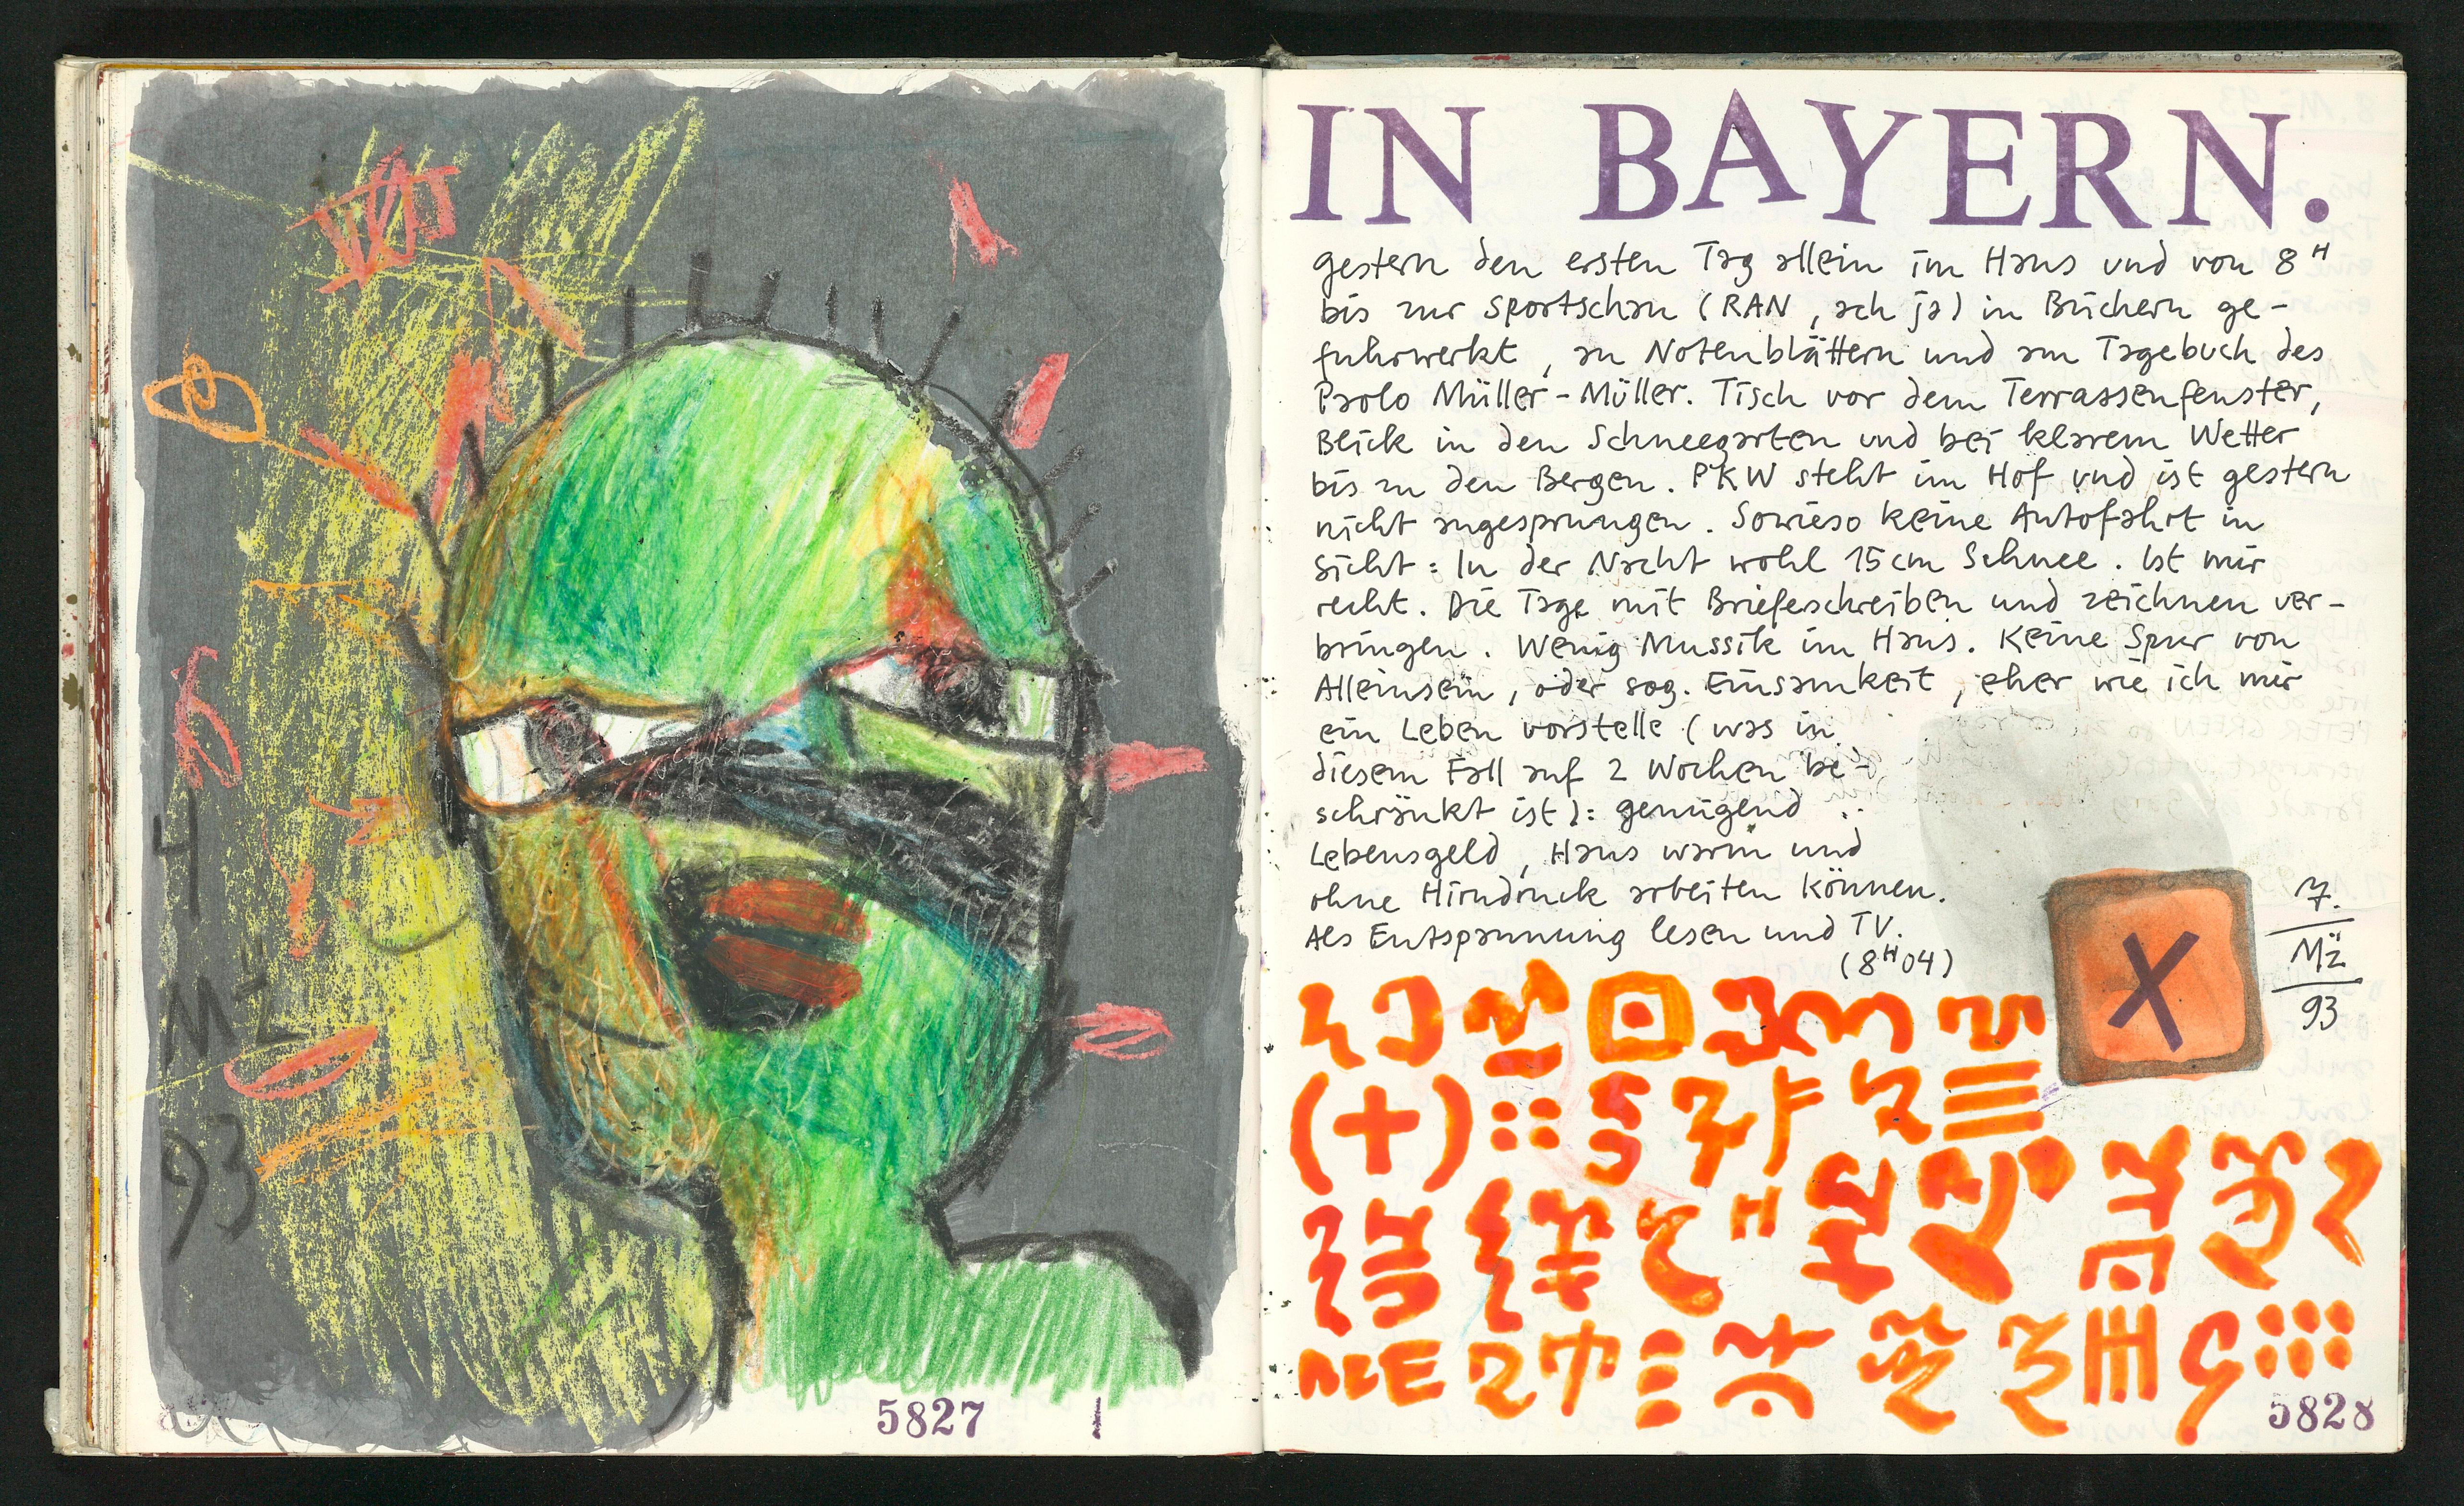 4
MZ
93
5827
IN BAYERN.
gestern den ersten Tag allein im Haus und von 8H
bis zur Sportschau (RAN, ach ja) in Büchern ge-
fuhrwerkt, an Notenblättern und am Tagebuch des
Paolo Müller-Müller. Tisch vor dem Terrassenfenster,
Blick in den Schneegarten und bei klarem Wetter
bis zu den Bergen. PKW steht im Hof und ist gestern
nicht angesprungen. Sowieso keine Autofahrt in
Sicht: In der Nacht wohl 15cm Schnee. Ist mir
recht. Die Tage mit Briefeschreiben und zeichnen ver-
bringen. Wenig Mussik im Haus. Keine Spur von
Alleinsein, oder sog. Einsamkeit, eher wie ich mir
ein Leben vorstelle (was in
diesem Fall auf 2 Wochen be-
schränkt ist): genügend
Lebensgeld, Haus warm und
ohne Hirndruck arbeiten können.
Als Entspannung lesen und TV.
(8H04)
X
7.
Mz
93
5828